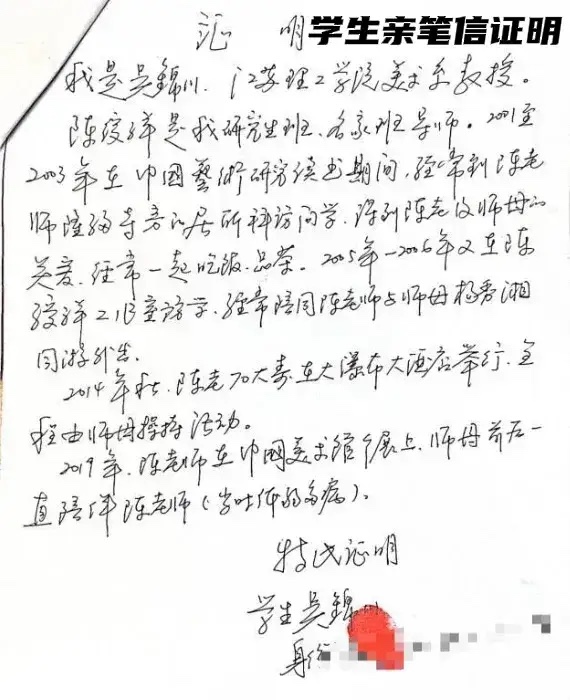 学生亲笔信证明
证 明
我是吴錦川、江苏理工学院美术系教授。
陈绶祥是我研究生班、名家班导师。2001至
2003年在中国藝術研究院读书期间,经常到陈老
师隆福寺旁的居所拜访问学,得到陈老及师母的
关爱、经常一起吃饭、品茶。2005年—2006年又在陈
绶祥工作室访学,经常陪同陈老师与师母杨秀湘
同游外出。
2014年秋、陈老70大寿在大瀑布大酒店举行、全
程由师母操持活动。
2019年,陈老师在中國美术馆个展上、师母前后一
直陪伴陈老师(当时体弱多病)。
特此证明
学生吴錦川
身份